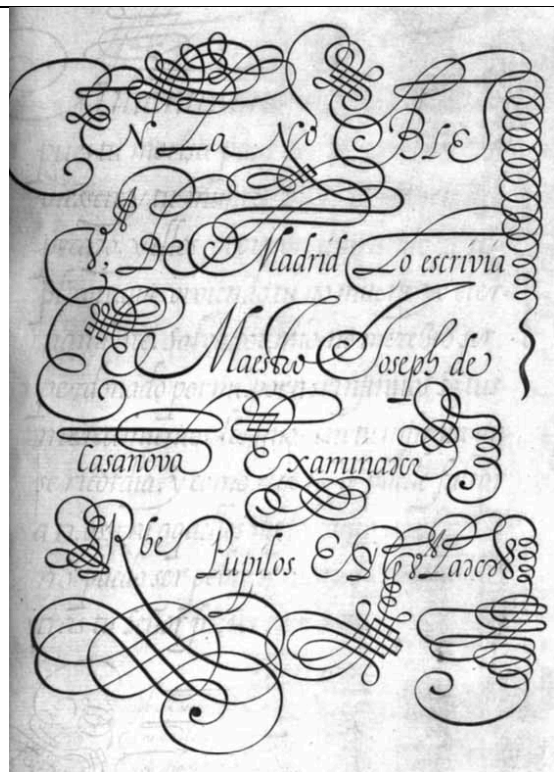 N a No BLE
De Madrid Lo escrivia
Maestro Joseph de
Casanova Examinador
Rbe Pupilos. EN